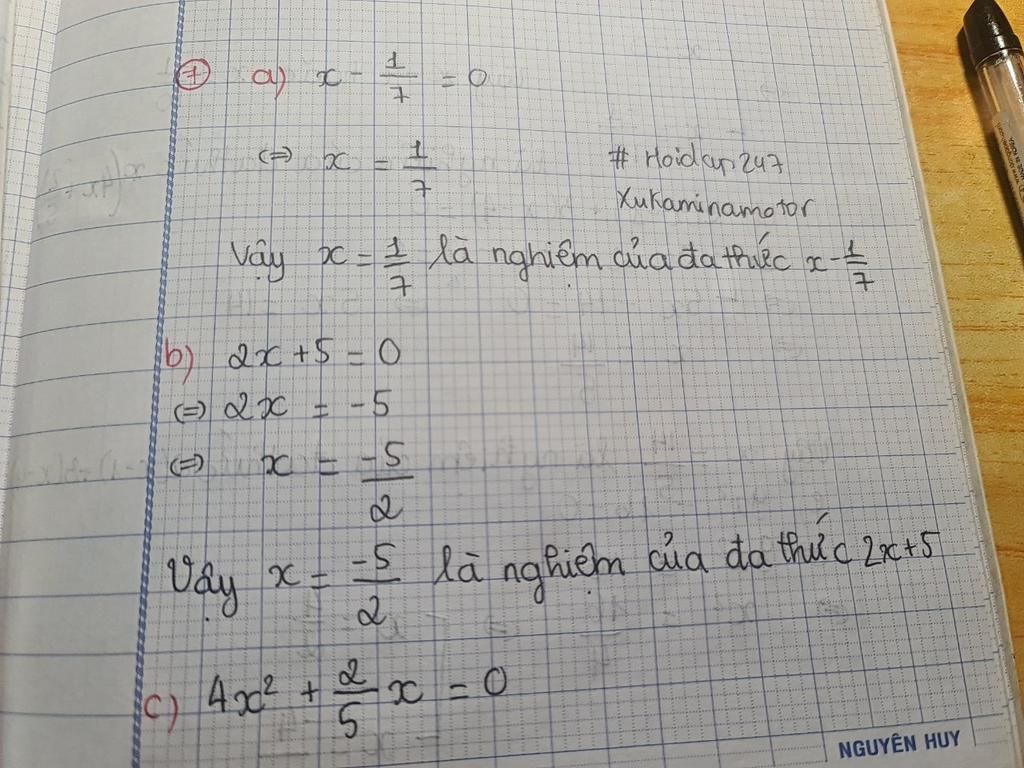 7 a) x - 1/7 = 0
(=) x = 1/7
# Hoidap247
Xukaminamotor
Vậy x = 1/7 là nghiệm của đa thức x - 1/7
b) 2x + 5 = 0
(=) 2x = -5
(=) x = -5/2
Vậy x = -5/2 là nghiệm của đa thức 2x+5
c) 4x² + 2/5 x = 0
NGUYÊN HUY